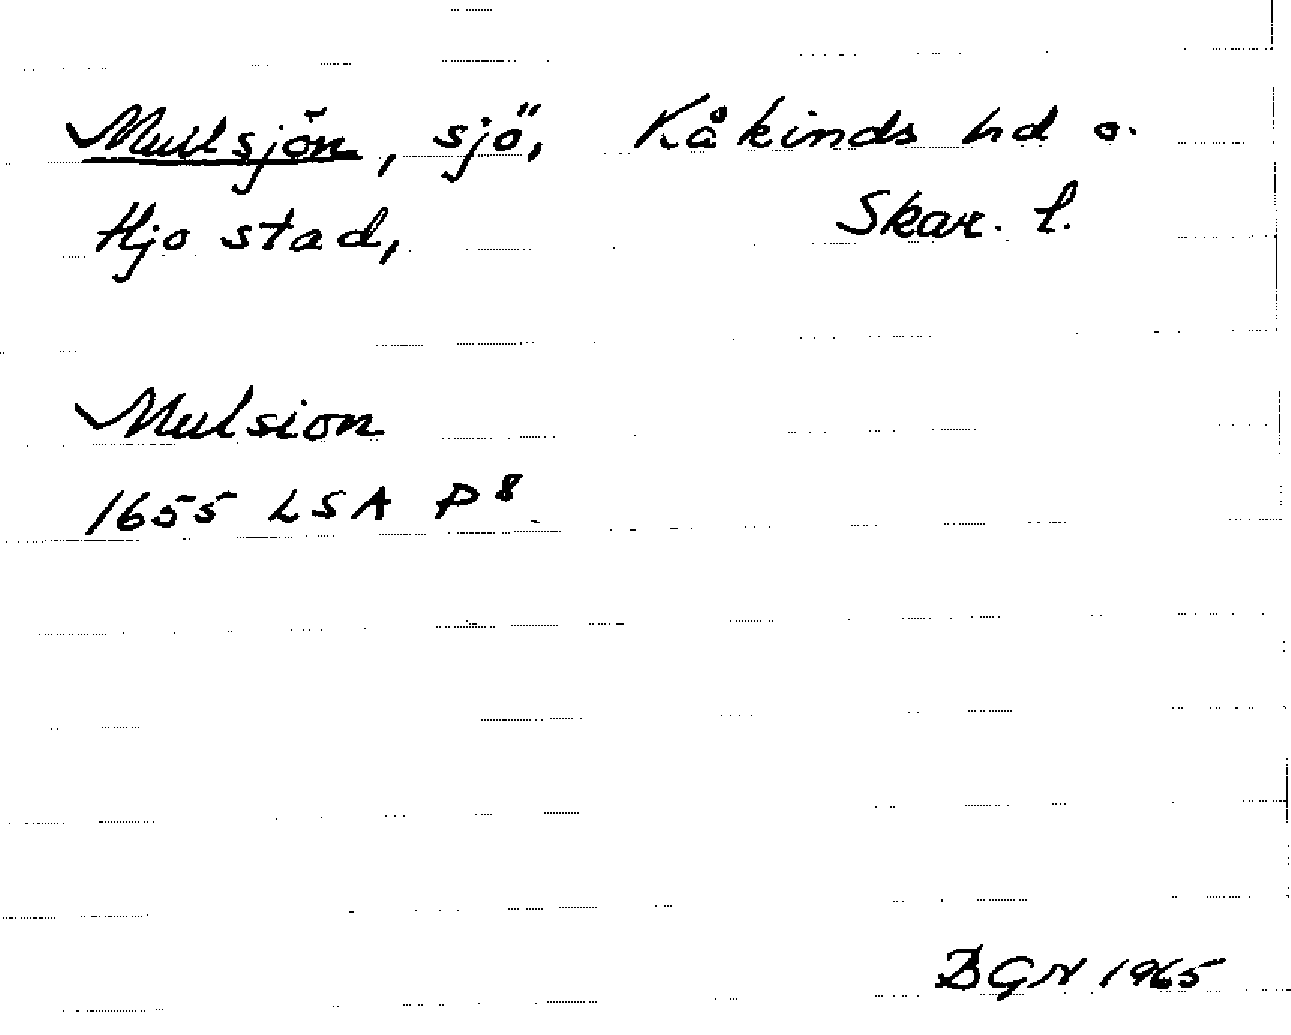 Mullsjön, sjö, Kåkinds hd o.
Hjo stad, Skar. l.
Mulsion
1655 LSA P8
BGN 1965